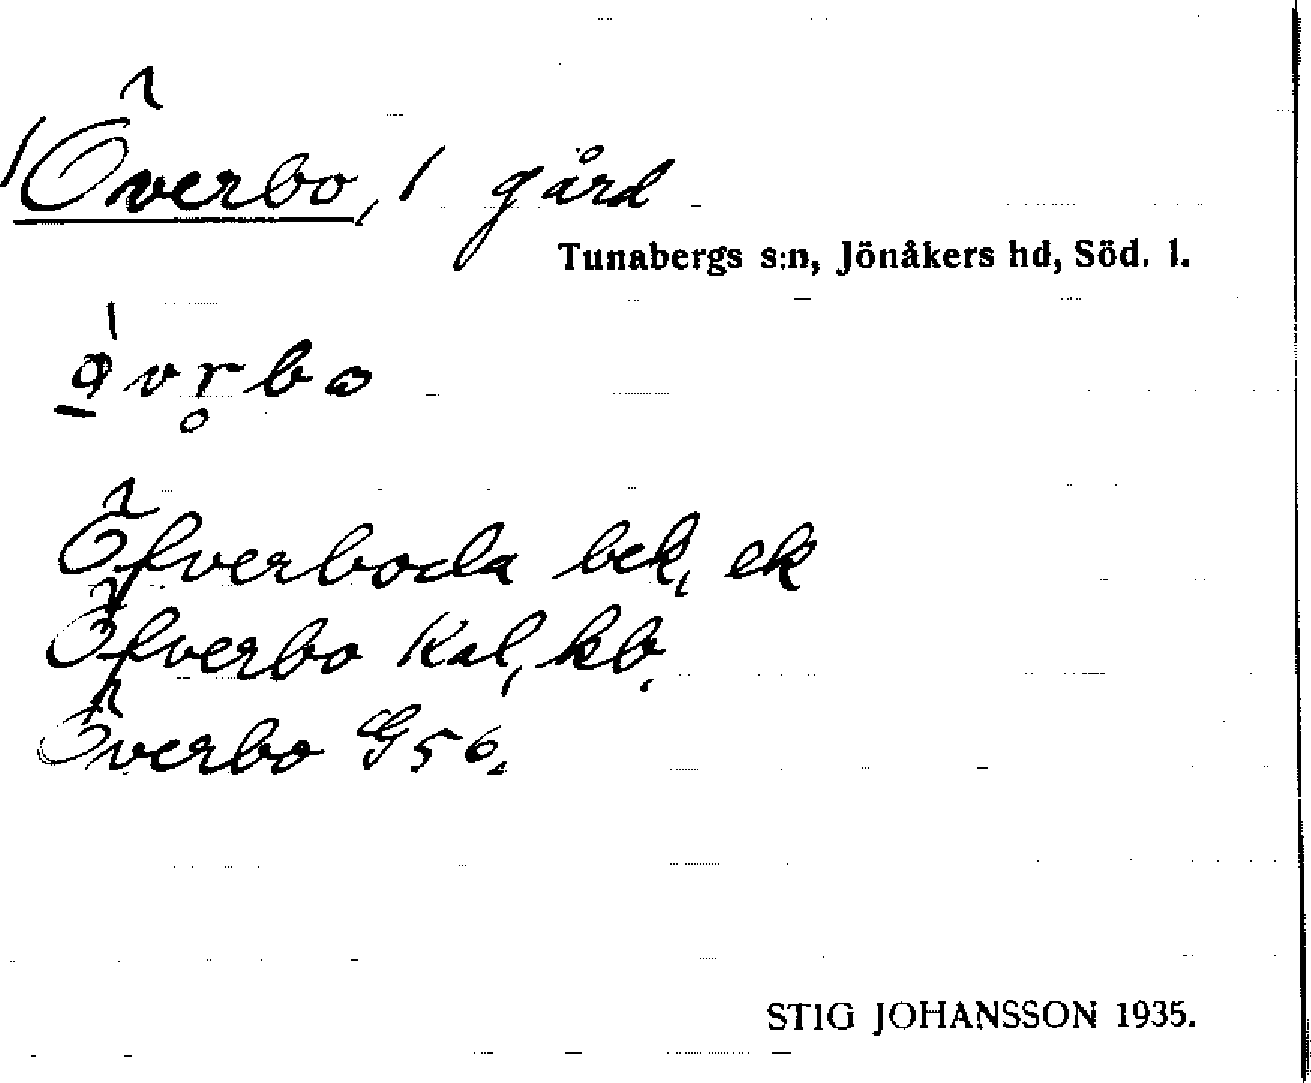 Överbo, 1 gård
Tunabergs s:n, Jönåkers hd, Söd. l.
Öfverboda bek, ek
Öfverbo Kal, kb.
Överbo G 56.
STIG JOHANSSON 1935.